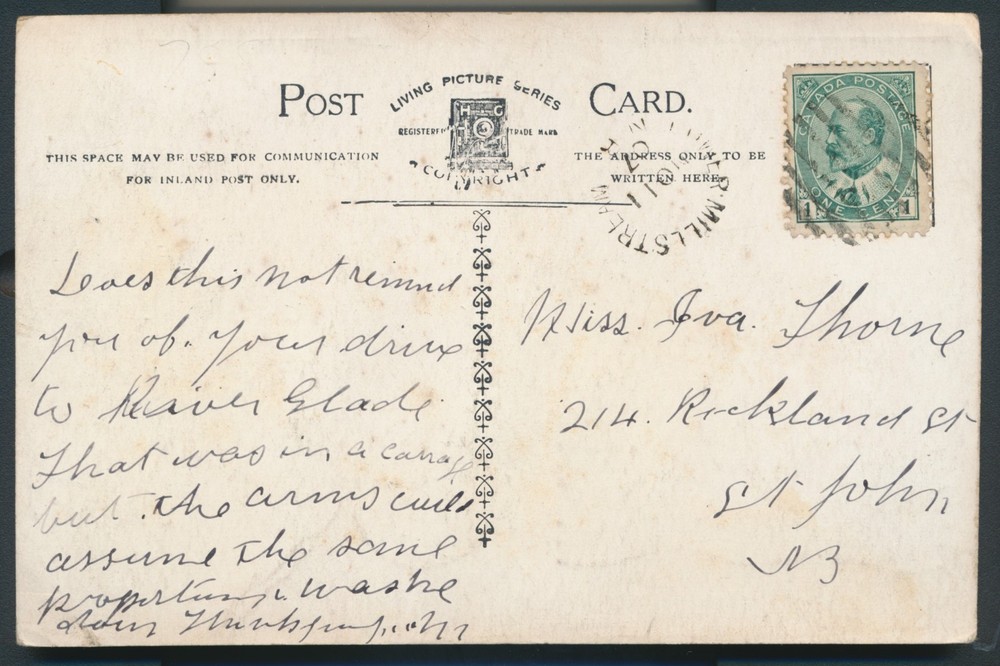 POST CARD.
LIVING PICTURE SERIES
H C
REGISTERED TRADE MARK
COPYRIGHT
THIS SPACE MAY BE USED FOR COMMUNICATION
FOR INLAND POST ONLY.
THE ADDRESS ONLY TO BE
WRITTEN HERE.
LOWER MILLSTREAM
CANADA POSTAGE
ONE CENT
1 1
Does this not remind
you of. Your drive
to River Glade
That was in a carrage
but. the arms could
assume the same
was he
Miss. Eva. Thorne
214. Rockland St
St John
NB